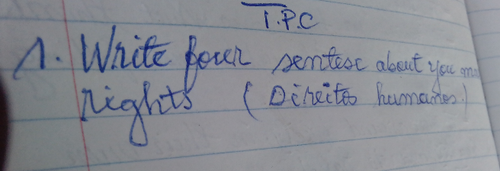 T.P.C
1. Write four sentesc about you
rights (Direitos humanos)